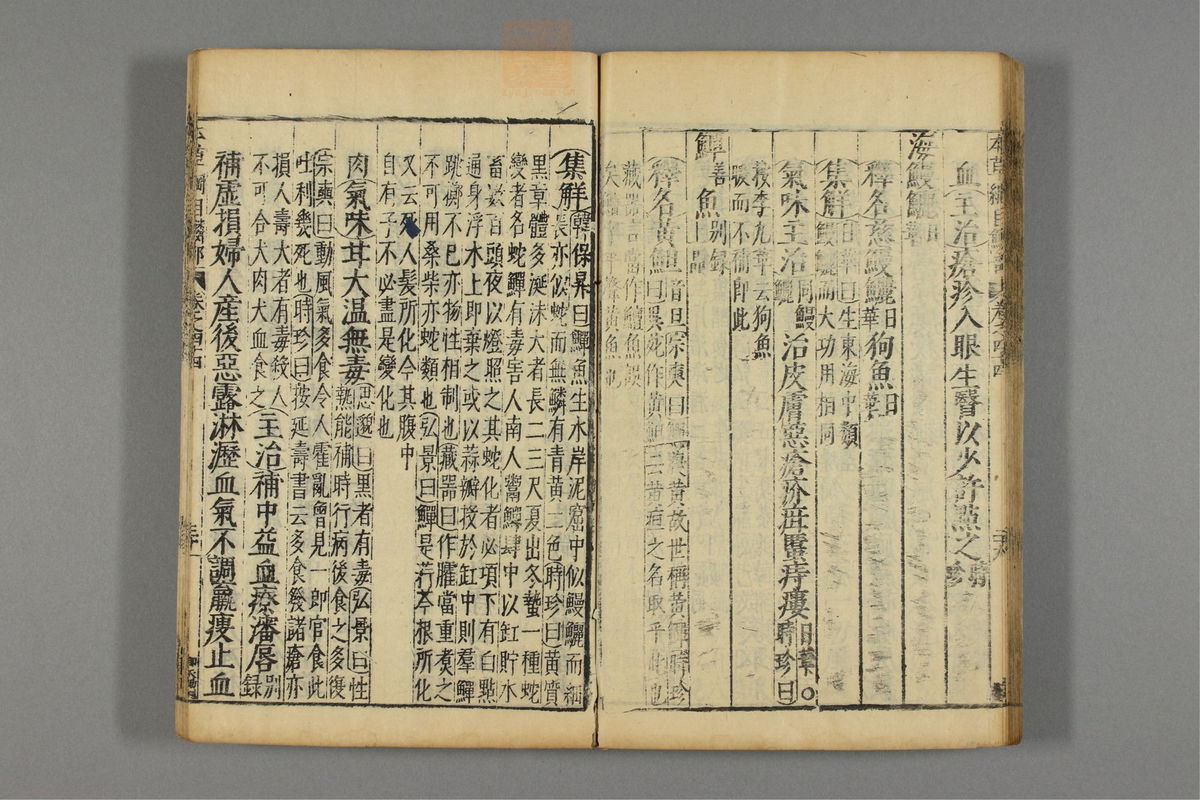 血主治瘡疹入眼生瞖以少許點之時珍
海鰻鱺日華
釋名慈鰻鱺日華狗魚日華
集解日華曰生東海中類
鰻鱺而大功用相同
氣味主治同鰻鱺治皮膚惡瘡疥疳䘌痔瘻日華○時珍曰
按李九華云狗魚
暖而不補即此
鱓魚音善別錄上品
釋名黃䱇音旦宗奭曰鱓腹黃故世稱黃鱓時珍
曰異苑作黃䱇云黃疸之名取乎此也
藏器言當作鱣魚誤
矣鱣字平聲黃魚也
集解韓保昇曰鱓魚生水岸泥窟中似鰻鱺而細
長亦似蛇而無鱗有青黃二色時珍曰黃質
黑章體多涎沫大者長二三尺夏出冬蟄一種蛇
變者名蛇鱓有毒害人南人鬻鱓肆中以缸貯水
畜數百頭夜以燈照之其蛇化者必項下有白點
通身浮水上即棄之或以蒜瓣投於缸中則羣鱓
跳擲不已亦物性相制也藏器曰作臛當重煮之
不可用桑柴亦蛇類也弘景曰鱓是荇芩根所化
又云死人髮所化今其腹中
自有子不必盡是變化也
肉氣味甘大温無毒思邈曰黑者有毒弘景曰性
熱能補時行病後食之多復
宗奭曰動風氣多食令人霍亂曾見一郎官食此
吐利幾死也時珍曰按延壽書云多食發諸瘡亦
損人壽大者有毒殺人
不可合犬肉犬血食之主治補中益血療瀋唇別錄
補虛損婦人産後惡露淋瀝血氣不調羸瘦止血